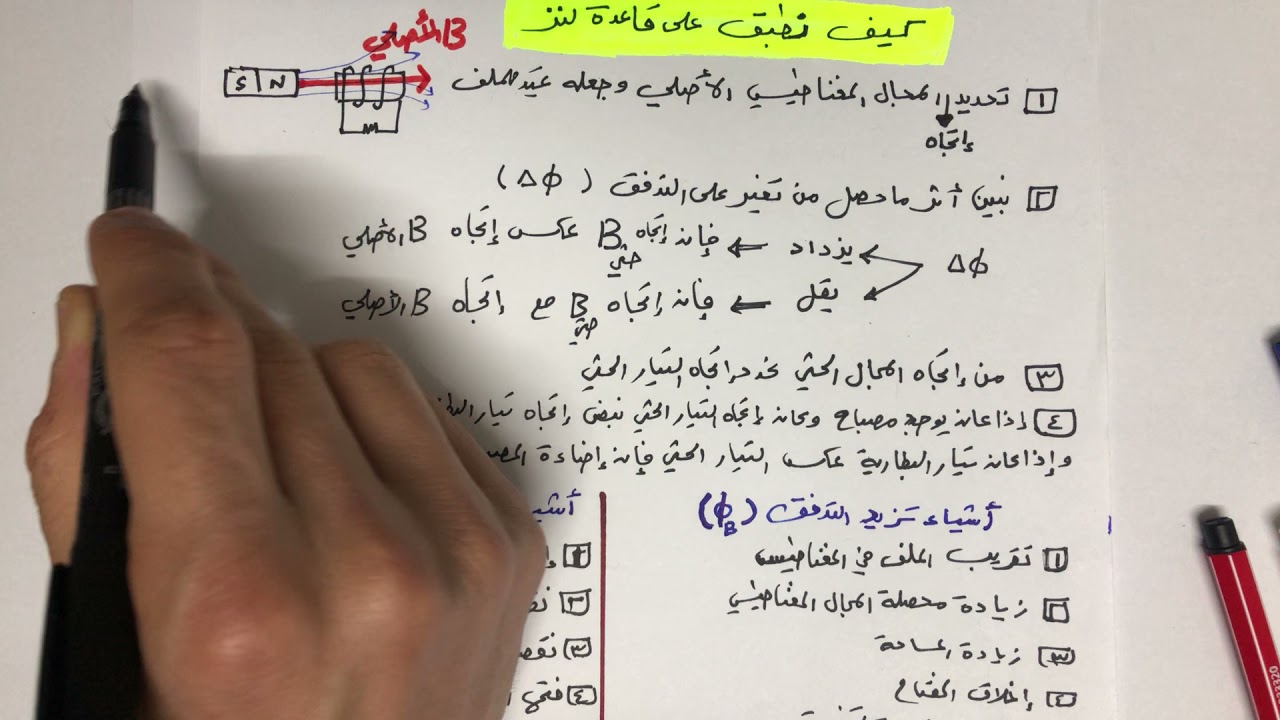 كيف نطبق على قاعدة لنز
B الأصلي
S N
١ تحديد المجال المغناطيسي الأصلي وجعله عند الملف
إتجاه
٢ نبين أثر ما حصل من تغير على التدفق (ΔΦ)
ΔΦ
يزداد ← فإن إتجاه B حثي عكس إتجاه B الأصلي
يقل ← فإن إتجاه B حثي مع إتجاه B الأصلي
٣ من إتجاه المجال الحثي نحدد إتجاه التيار الحثي
٤ إذا كان يوجد مصباح وكان إتجاه التيار الحثي نفس إتجاه تيار
وإذا كان تيار البطارية عكس التيار الحثي فإن إضاءة
أشياء تزيد التدفق (Φ_B)
١ تقريب الملف من المغناطيس
٢ زيادة محصلة المجال المغناطيسي
٣ زيادة المساحة
٤ إغلاق المفتاح